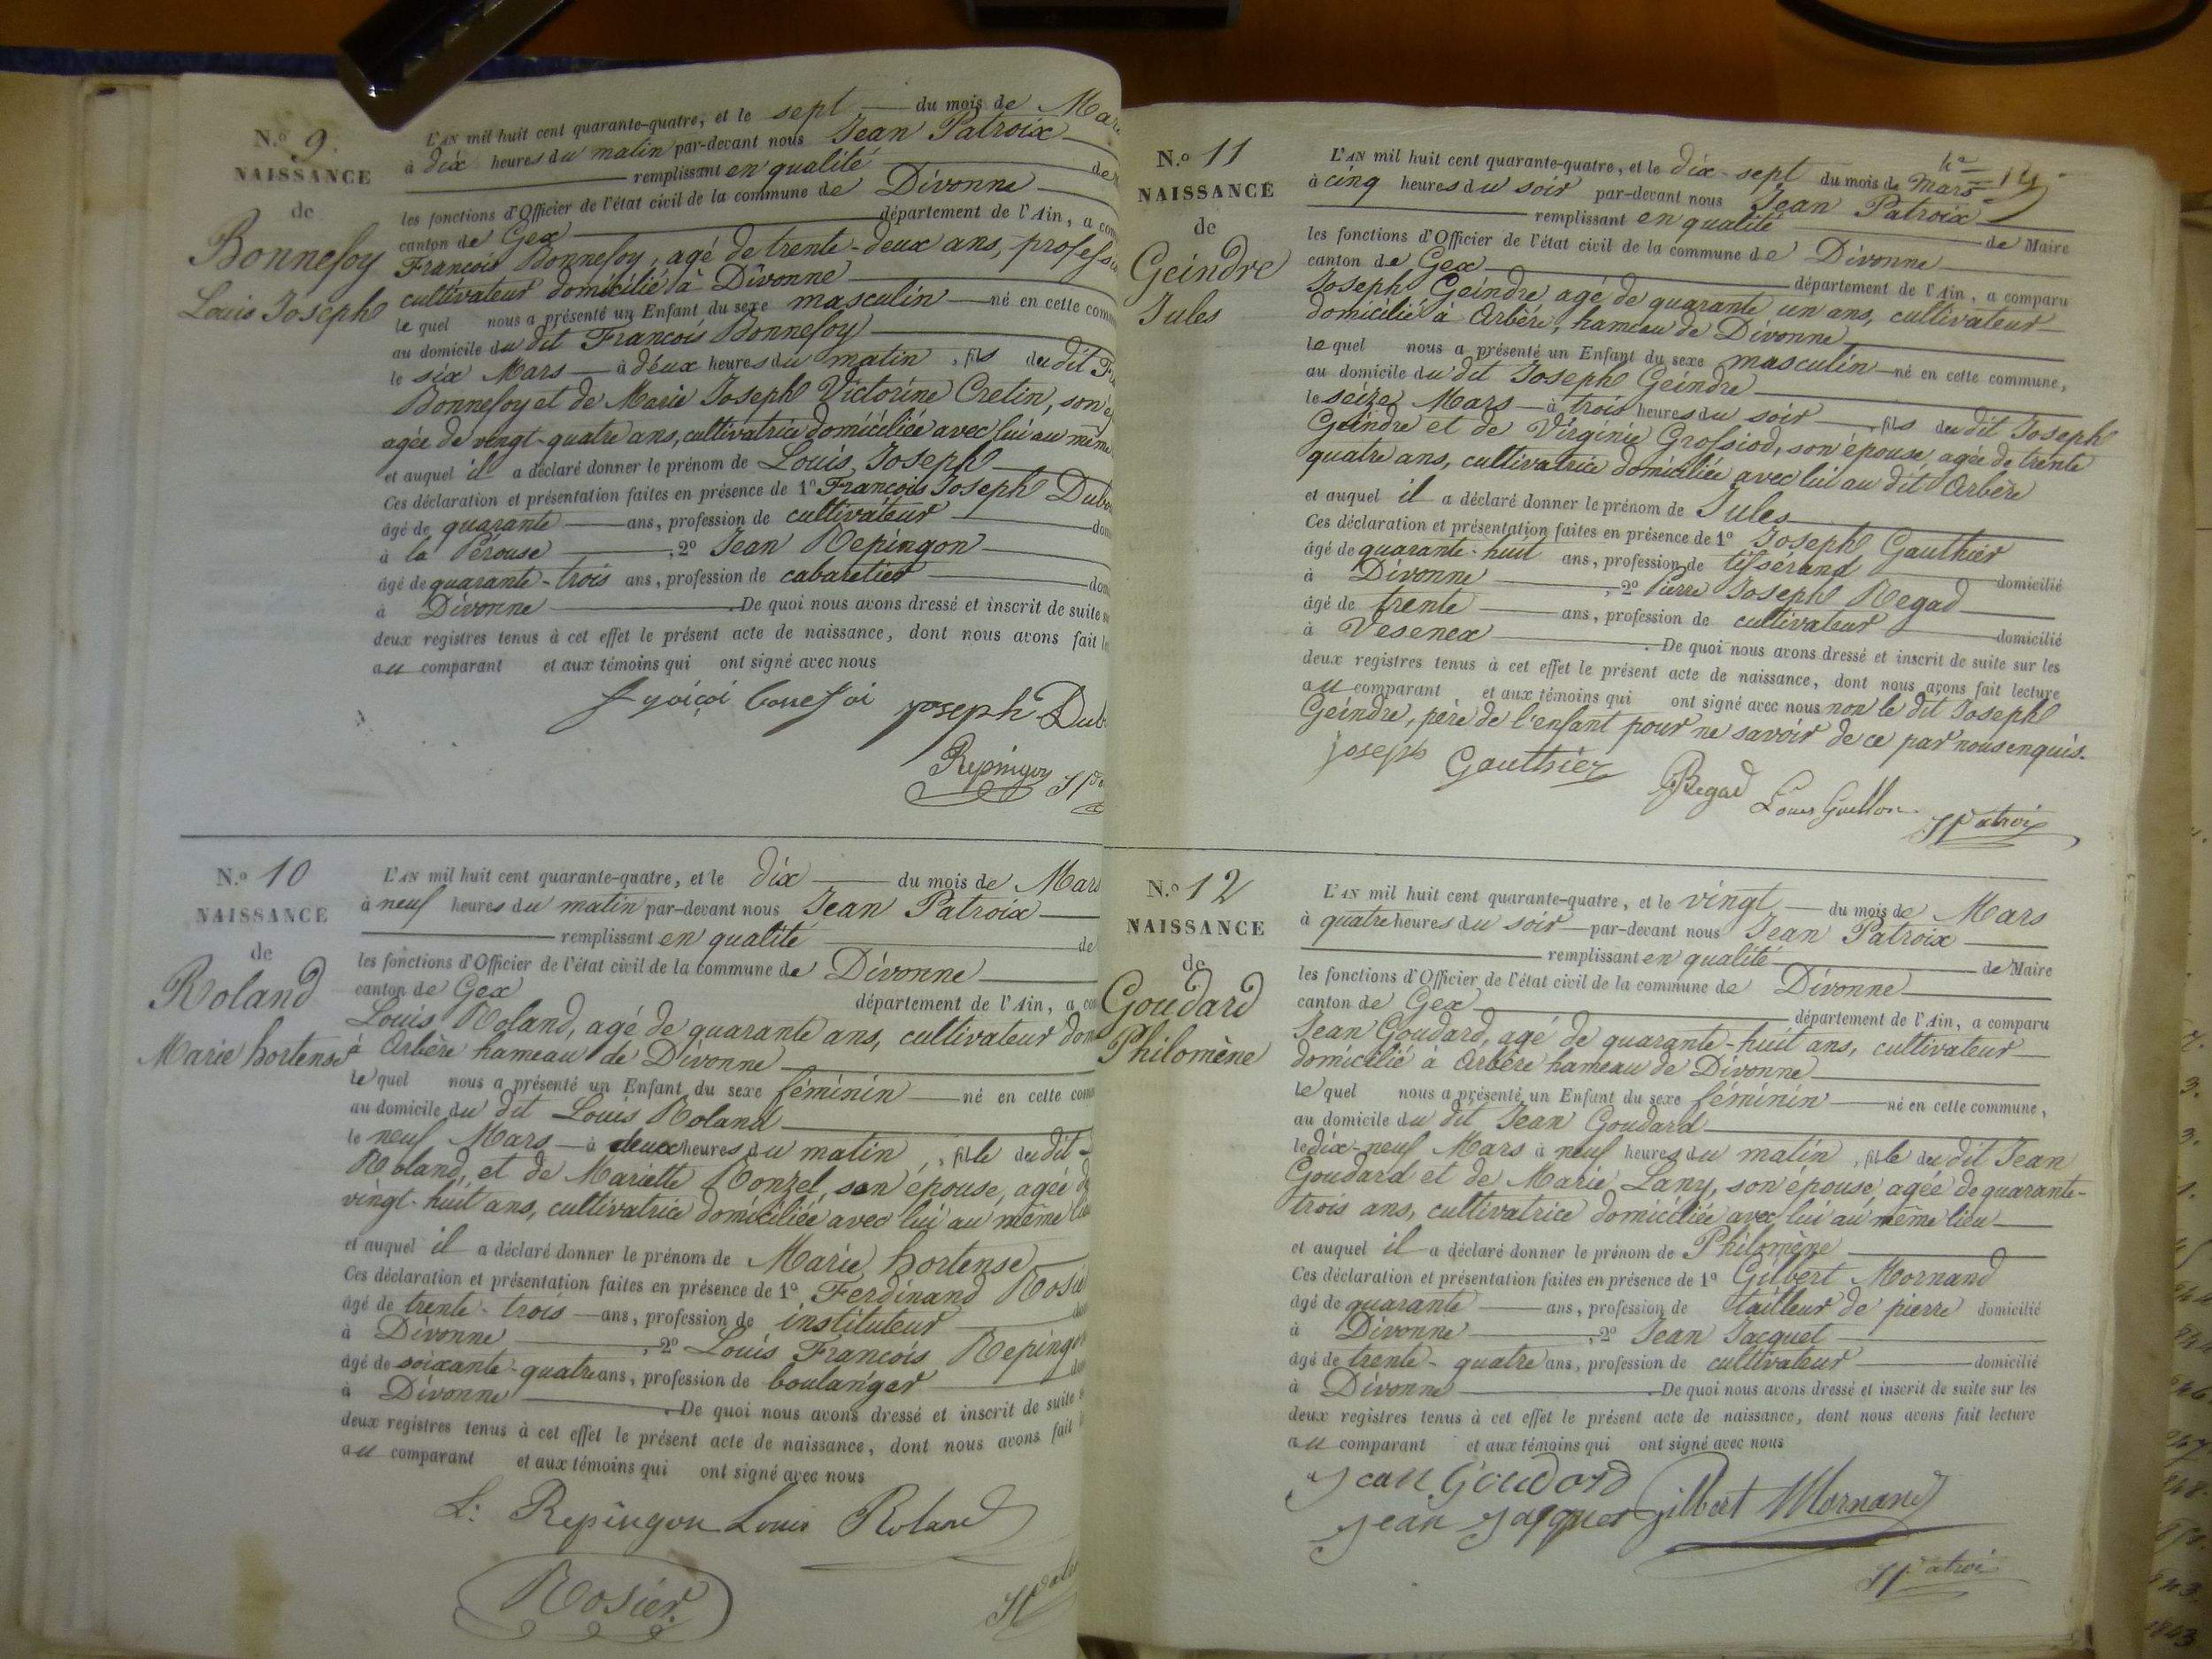 N.o 9.
NAISSANCE
de
Bonnefoy
Louis Joseph
L'AN mil huit cent quarante-quatre, et le sept du mois de
à dix heures du matin par-devant nous Jean Patroix
remplissant en qualité
les fonctions d'Officier de l'état civil de la commune de Divonne
canton de Gex département de l'Ain, a
François Bonnefoy, agé de trente-deux ans,
cultivateur domicilié à Divonne
le quel nous a présenté un Enfant du sexe masculin né en cette
au domicile du dit François Bonnefoy
le six Mars à deux heures du matin, fils du dit
Bonnefoy et de Marie Joseph Victorine Cretin, son
agée de vingt-quatre ans, cultivatrice domiciliée avec lui au même
et auquel il a déclaré donner le prénom de Louis, Joseph
Ces déclaration et présentation faites en présence de 1o François Joseph
âgé de quarante ans, profession de cultivateur
à la Pérouse, 2o Jean Repingon
âgé de quarante-trois ans, profession de cabaretier
à Divonne. De quoi nous avons dressé et inscrit de suite
deux registres tenus à cet effet le présent acte de naissance, dont nous avons fait
au comparant et aux témoins qui ont signé avec nous
joseph
Repingon
N.o 10
NAISSANCE
de
Roland
Marie hortense
L'AN mil huit cent quarante-quatre, et le dix du mois de Mars
à neuf heures du matin par-devant nous Jean Patroix
remplissant en qualité de
les fonctions d'Officier de l'état civil de la commune de Divonne
canton de Gex département de l'Ain, a
Louis Roland, agé de quarante ans, cultivateur
à Arbère hameau de Divonne
le quel nous a présenté un Enfant du sexe féminin né en cette
au domicile du dit Louis Roland
le neuf Mars à deux heures du matin, fille du dit
Roland, et de Mariette Ronzel, son épouse, agée
vingt-huit ans, cultivatrice domiciliée avec lui au même
et auquel il a déclaré donner le prénom de Marie hortense
Ces déclaration et présentation faites en présence de 1o Ferdinand
âgé de trente-trois ans, profession de instituteur
à Divonne, 2o Louis François Repingon
âgé de soixante-quatre ans, profession de boulanger
à Divonne. De quoi nous avons dressé et inscrit de suite
deux registres tenus à cet effet le présent acte de naissance, dont nous avons fait
au comparant et aux témoins qui ont signé avec nous
L: Repingon Louis Roland
Rosier
N.o 11
NAISSANCE
de
Geindre
Jules
L'AN mil huit cent quarante-quatre, et le dix-sept du mois de Mars
à cinq heures du soir par-devant nous Jean Patroix
remplissant en qualité de Maire
les fonctions d'Officier de l'état civil de la commune de Divonne
canton de Gex département de l'Ain, a comparu
Joseph Geindre, agé de quarante un ans, cultivateur
domicilié à Arbère, hameau de Divonne
le quel nous a présenté un Enfant du sexe masculin né en cette commune,
au domicile du dit Joseph Geindre
le seize Mars à trois heures du soir, fils du dit Joseph
Geindre et de Virginie Grossiod, son épouse, agée de trente
quatre ans, cultivatrice domiciliée avec lui au dit Arbère
et auquel il a déclaré donner le prénom de Jules
Ces déclaration et présentation faites en présence de 1o Joseph Gauthier
âgé de quarante-huit ans, profession de tisserand domicilié
à Divonne, 2o Pierre Joseph Regad
âgé de trente ans, profession de cultivateur domicilié
à Vesenex. De quoi nous avons dressé et inscrit de suite sur les
deux registres tenus à cet effet le présent acte de naissance, dont nous avons fait lecture
au comparant et aux témoins qui ont signé avec nous non le dit Joseph
Geindre, père de l'enfant pour ne savoir de ce par nous enquis.
joseph Gauthier Regad Louis JPatroix
N.o 12
NAISSANCE
de
Goudard
Philomène
L'AN mil huit cent quarante-quatre, et le vingt du mois de Mars
à quatre heures du soir par-devant nous Jean Patroix
remplissant en qualité de Maire
les fonctions d'Officier de l'état civil de la commune de Divonne
canton de Gex département de l'Ain, a comparu
Jean Goudard, agé de quarante-huit ans, cultivateur
domicilié à Arbère hameau de Divonne
le quel nous a présenté un Enfant du sexe féminin né en cette commune,
au domicile du dit Jean Goudard
le dix-neuf Mars à neuf heures du matin, fille du dit Jean
Goudard et de Marie Lany, son épouse, agée de quarante-
trois ans, cultivatrice domiciliée avec lui au même lieu
et auquel il a déclaré donner le prénom de Philomène
Ces déclaration et présentation faites en présence de 1o Gilbert Mornand
âgé de quarante ans, profession de tailleur de pierre domicilié
à Divonne, 2o Jean Jacquet
âgé de trente-quatre ans, profession de cultivateur domicilié
à Divonne. De quoi nous avons dressé et inscrit de suite sur les
deux registres tenus à cet effet le présent acte de naissance, dont nous avons fait lecture
au comparant et aux témoins qui ont signé avec nous
jean Goudard
jean Gilbert Mornand
JPatroix